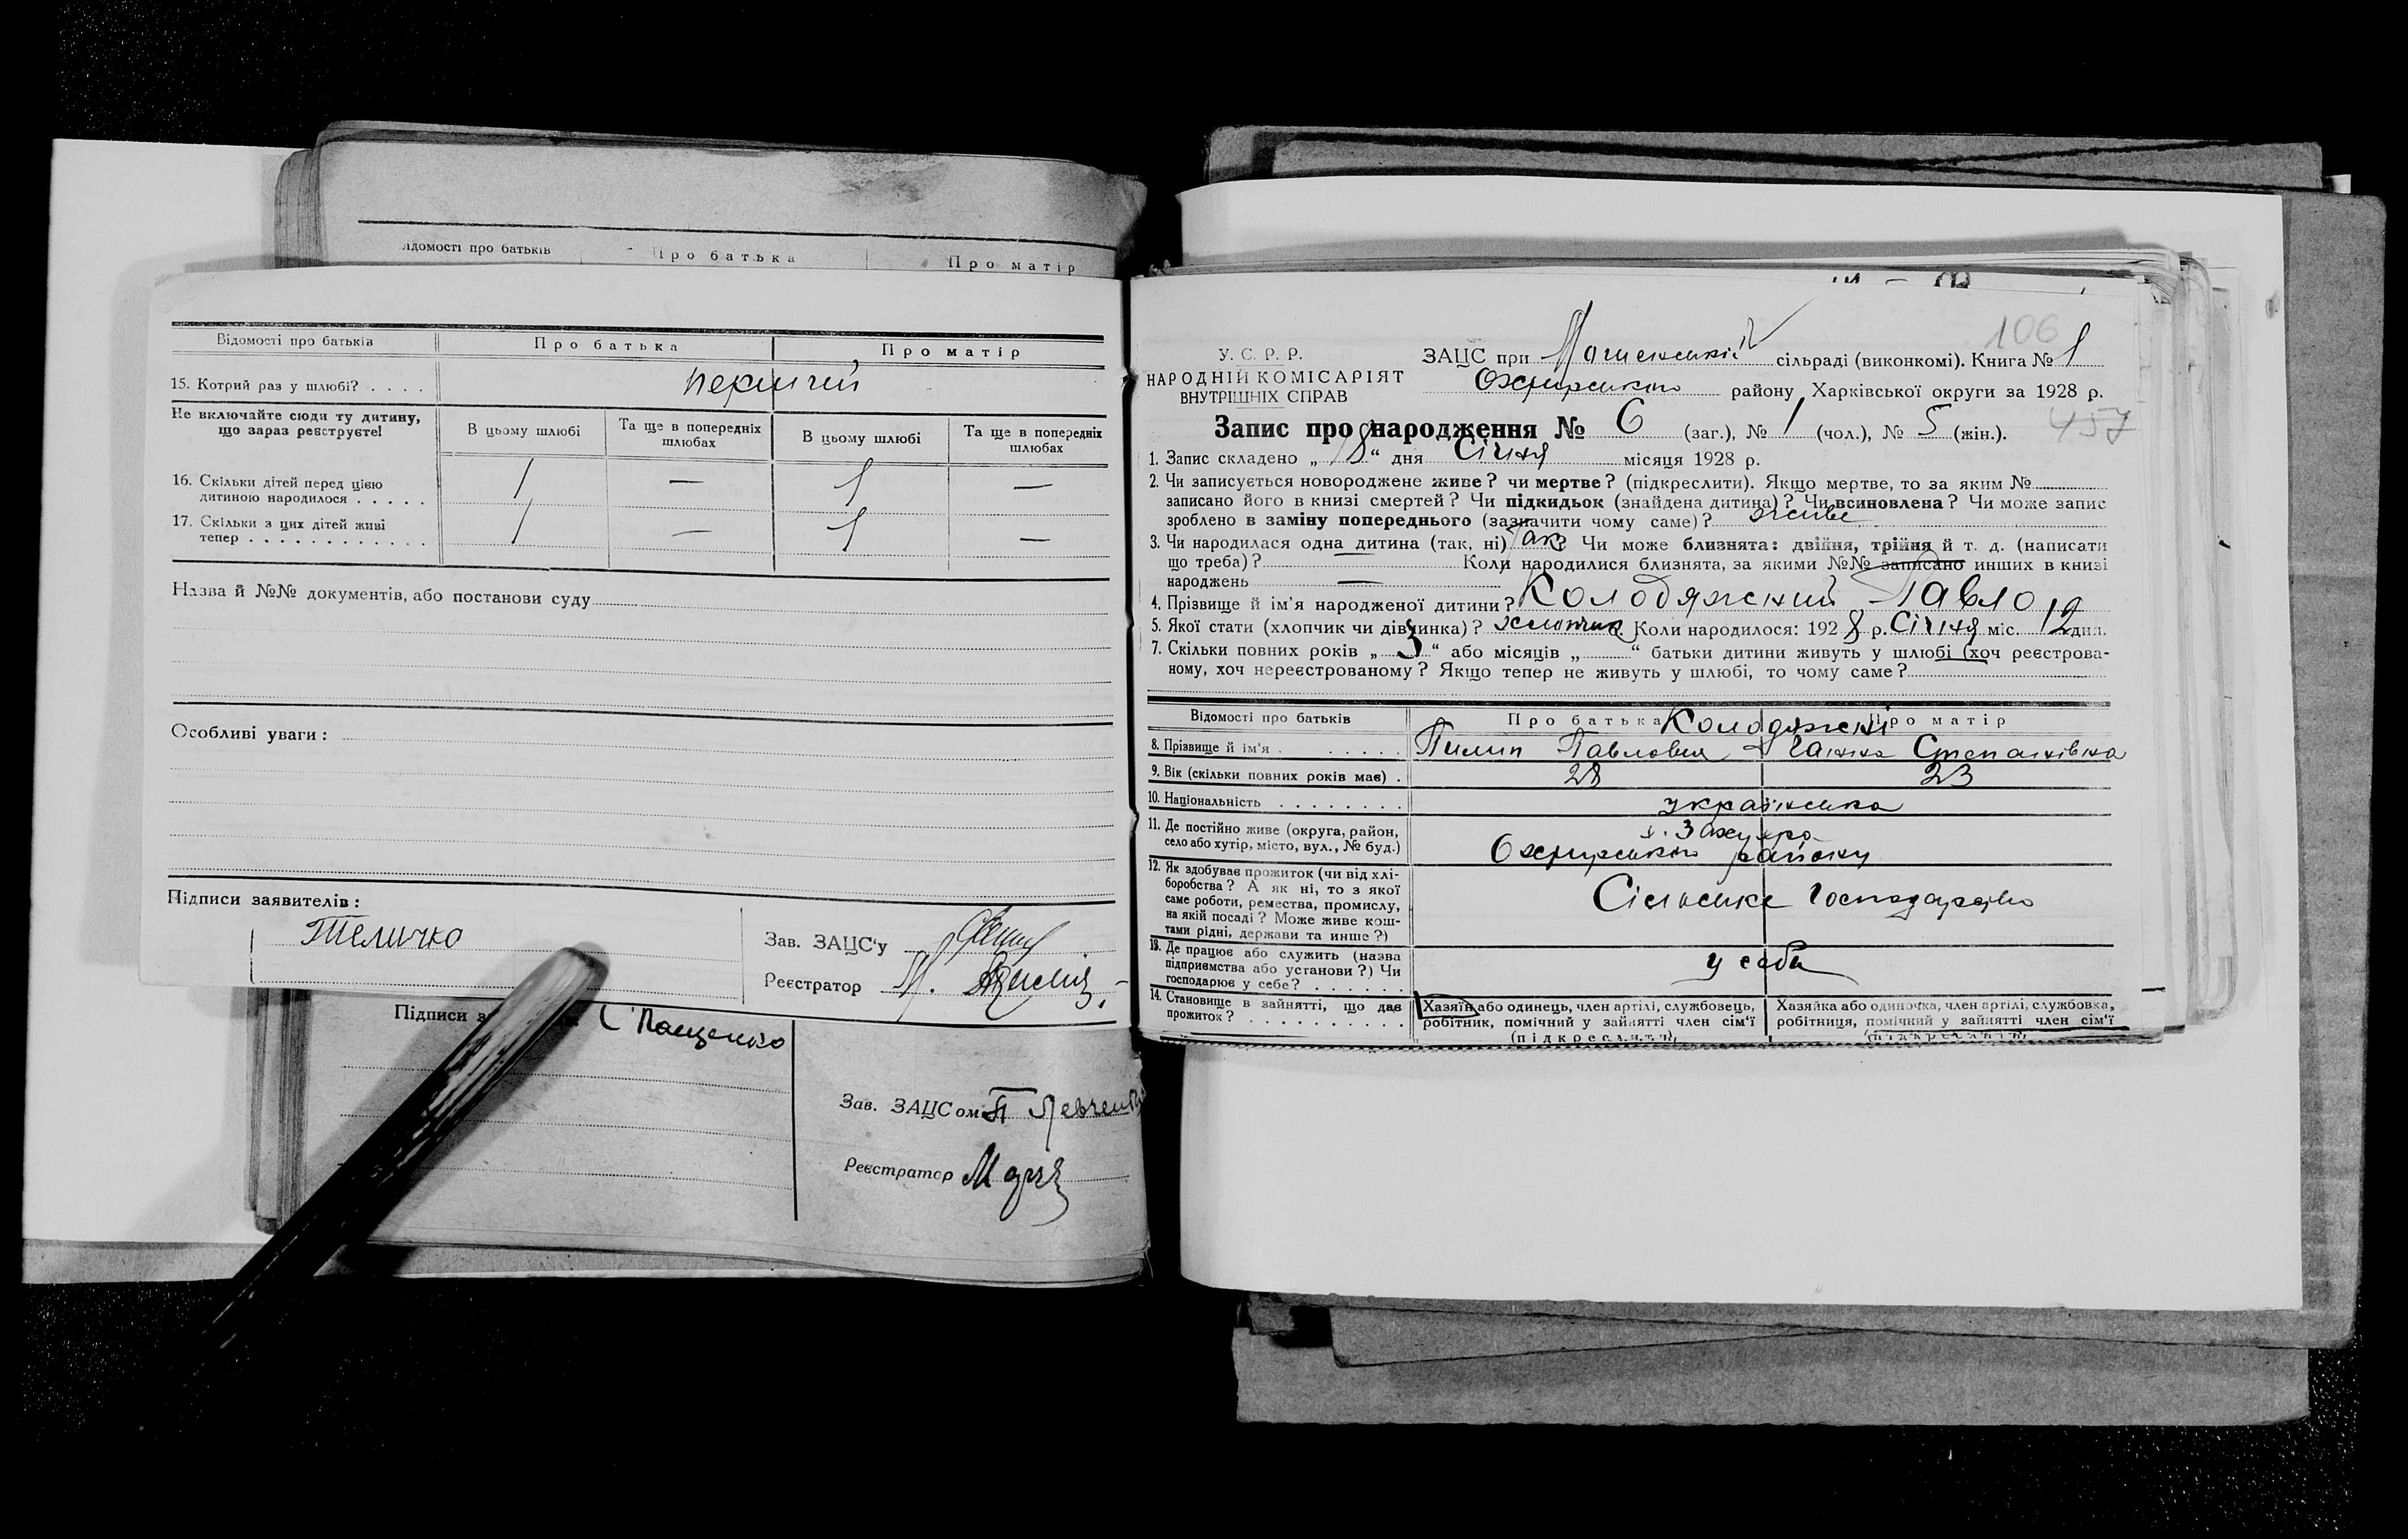 ідомості про батьків
Про батька
Про матір
Відомості про батьків
Про батька
Про матір
15. Котрий раз у шлюбі? . . . .
первий
Не включайте сюди ту дитину,
що зараз реєструєте!
В цьому шлюбі
Та ще в попередніх
шлюбах
В цьому шлюбі
Та ще в попередніх
шлюбах
16. Скільки дітей перед цією
дитиною народилося . . . . .
1 — 1 —
17. Скільки з цих дітей живі
тепер . . . . . . . . . . . .
1 — 1 —
Назва й №№ документів, або постанови суду
Особливі уваги:
Підписи заявителів:
Теличко
Зав. ЗАЦС'у
Реєстратор
Підписи з
Пащенко
Зав. ЗАЦСом П Левченко
Реєстратор
106
У. С. Р. Р.
НАРОДНІЙ КОМІСАРІЯТ
ВНУТРІШНІХ СПРАВ
ЗАЦС при сільраді (виконкомі). Книга № 1
району Харківської округи за 1928 р.
457
Запис про народження № 6 (заг.), № 1 (чол.), № 5 (жін.).
1. Запис складено „ 18 “ дня Січня місяця 1928 р.
2. Чи записується новороджене живе? чи мертве? (підкреслити). Якщо мертве, то за яким №
записано його в книзі смертей? Чи підкидьок (знайдена дитина)? Чи всиновлена? Чи може запис
зроблено в заміну попереднього (зазначити чому саме)? живе
3. Чи народилася одна дитина (так, ні) Так Чи може близнята: двійня, трійня й т. д. (написати
що треба)? — Коли народилися близнята, за якими №№ записано инших в книзі
народжень —
4. Прізвище й ім'я народженої дитини? Колодяжний Павло
5. Якої статі (хлопчик чи дівчинка)? хлопчик. Коли народилося: 1928 р. Січня міс. 12 дня.
7. Скільки повних років „ 3 “ або місяців „ “ батьки дитини живуть у шлюбі (хоч реєстрова-
ному, хоч нереєстрованому? Якщо тепер не живуть у шлюбі, то чому саме?
Відомості про батьків
Про батька
Про матір
Колодяжні
8. Прізвище й ім'я . . . . . .
Пилип Павлович
Ганна Степанівна
9. Вік (скільки повних років має) .
28
23
10. Національність . . . . . . . .
українська
11. Де постійно живе (округа, район,
село або хутір, місто, вул., № буд.)
району
12. Як здобуває прожиток (чи від хлі-
боробства? А як ні, то з якої
саме роботи, ремества, промислу,
на якій посаді? Може живе кош-
тами рідні, держави та инше?)
Сільське господарство
13. Де працює або служить (назва
підприємства або установи?) Чи
господарює у себе? . . . . . .
у себе
14. Становище в зайнятті, що дає
прожиток? . . . . . . . . . .
Хазяїн або одинець, член артілі, службовець,
робітник, помічний у зайнятті член сім'ї
(підкреслити)
Хазяйка або одиночка, член артілі, службовка,
робітниця, помічний у зайнятті член сім'ї
(підкреслити)